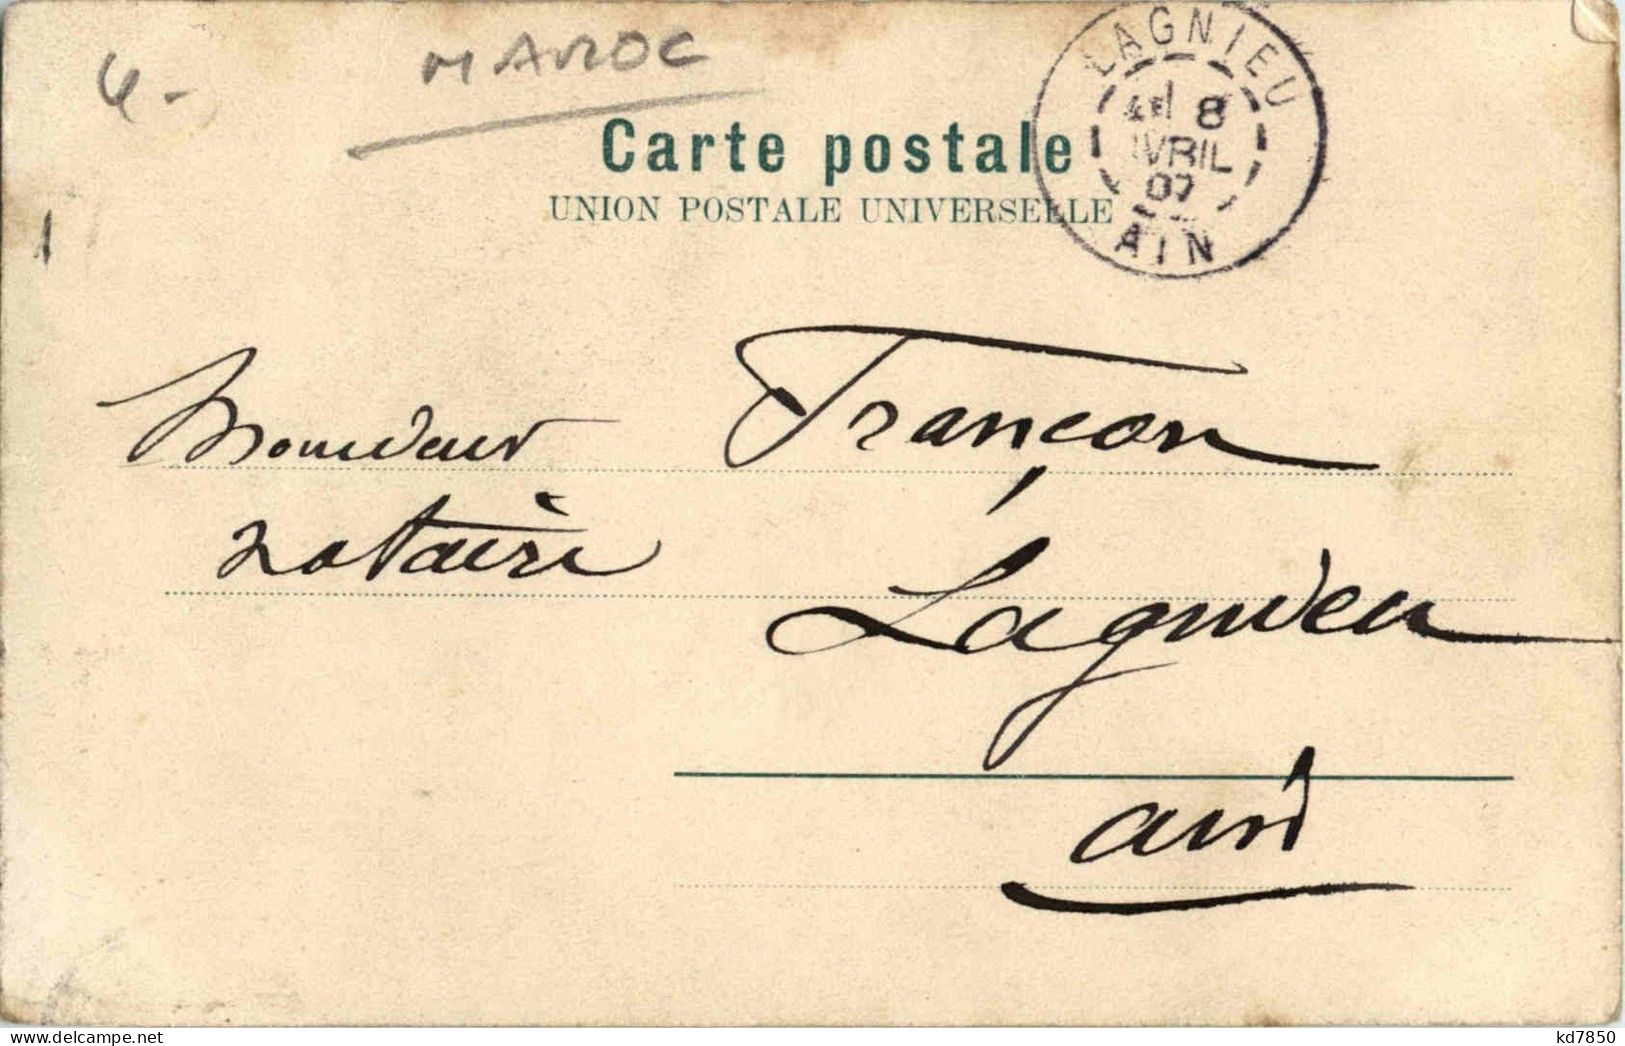 4.-
MAROC
Carte postale
UNION POSTALE UNIVERSELLE
LAGNIEU
8
AVRIL
07
AIN
Monsieur Françon
notaire
Lagnieu
ain
delcampe.net
kd7850